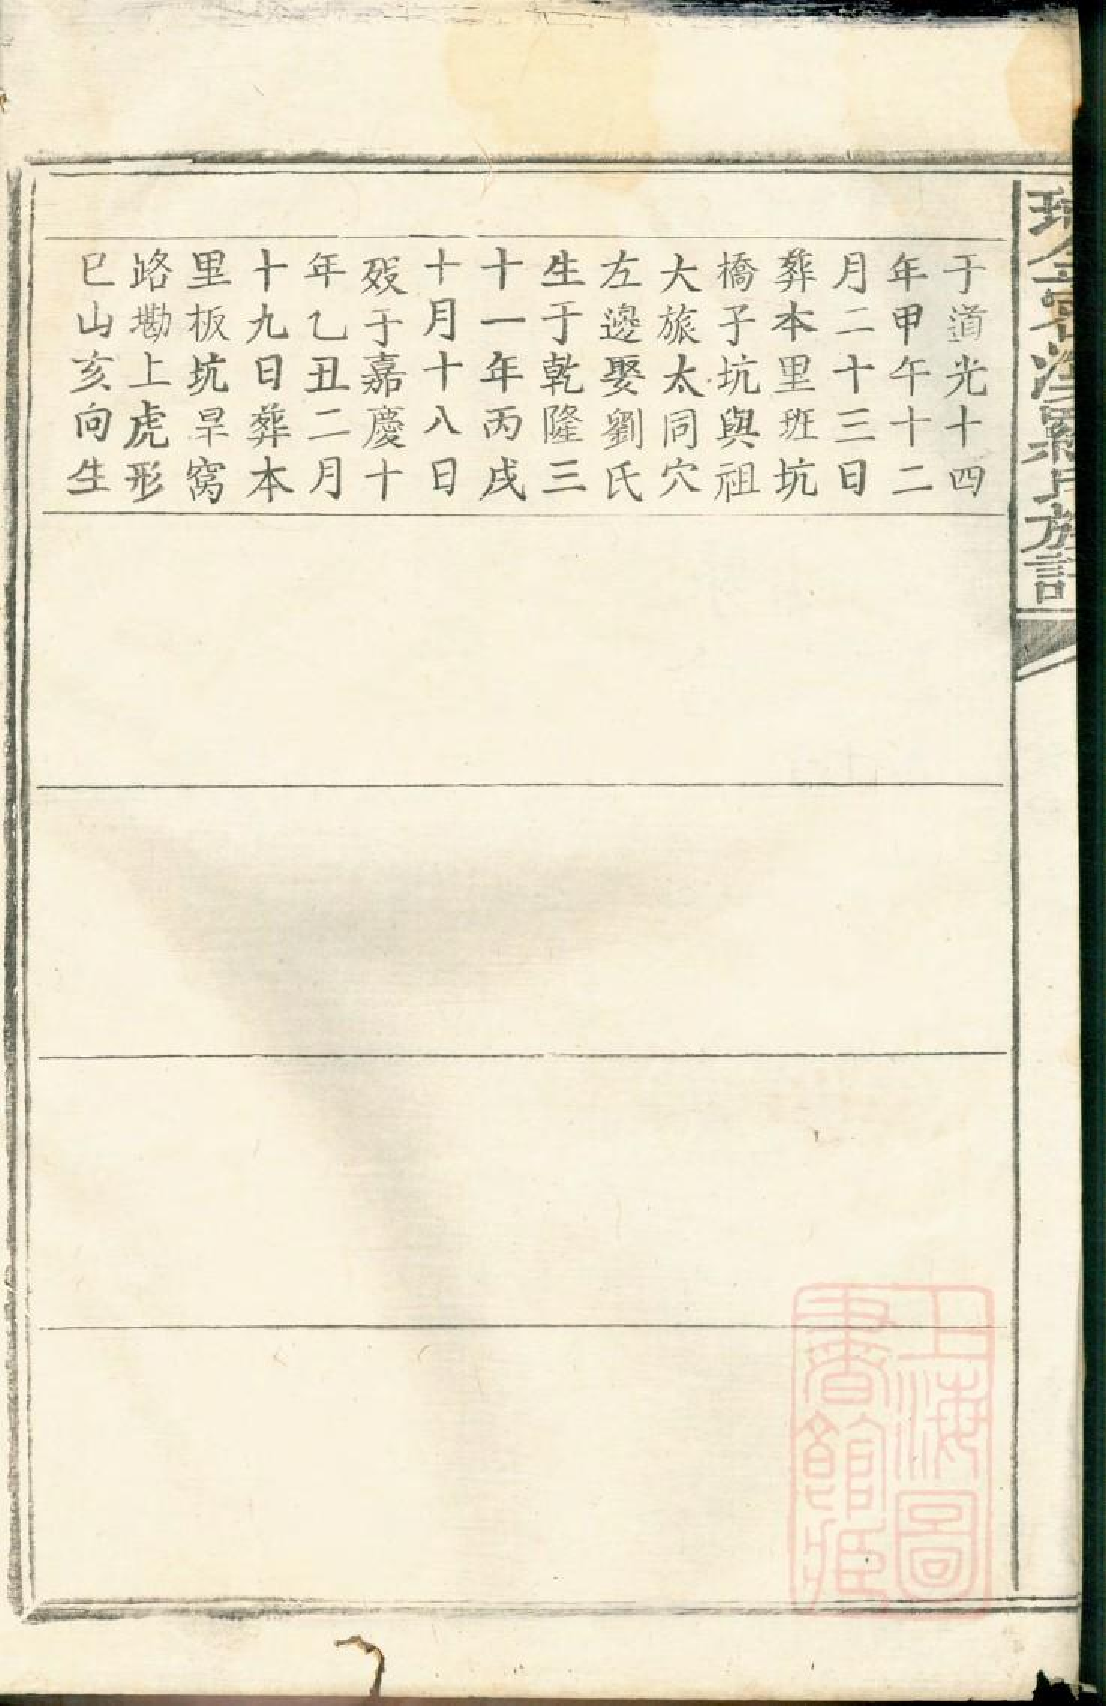 于道光十四
年甲午十二
月二十三日
葬本里班坑
橋子坑與祖
大旅太同穴
左邊娶劉氏
生于乾隆三
十一年丙戌
十月十八日
殁于嘉慶十
年乙丑二月
十九日葬本
里板坑旱窩
路墈上虎形
巳山亥向生
羅氏族譜
上海圖
書館藏